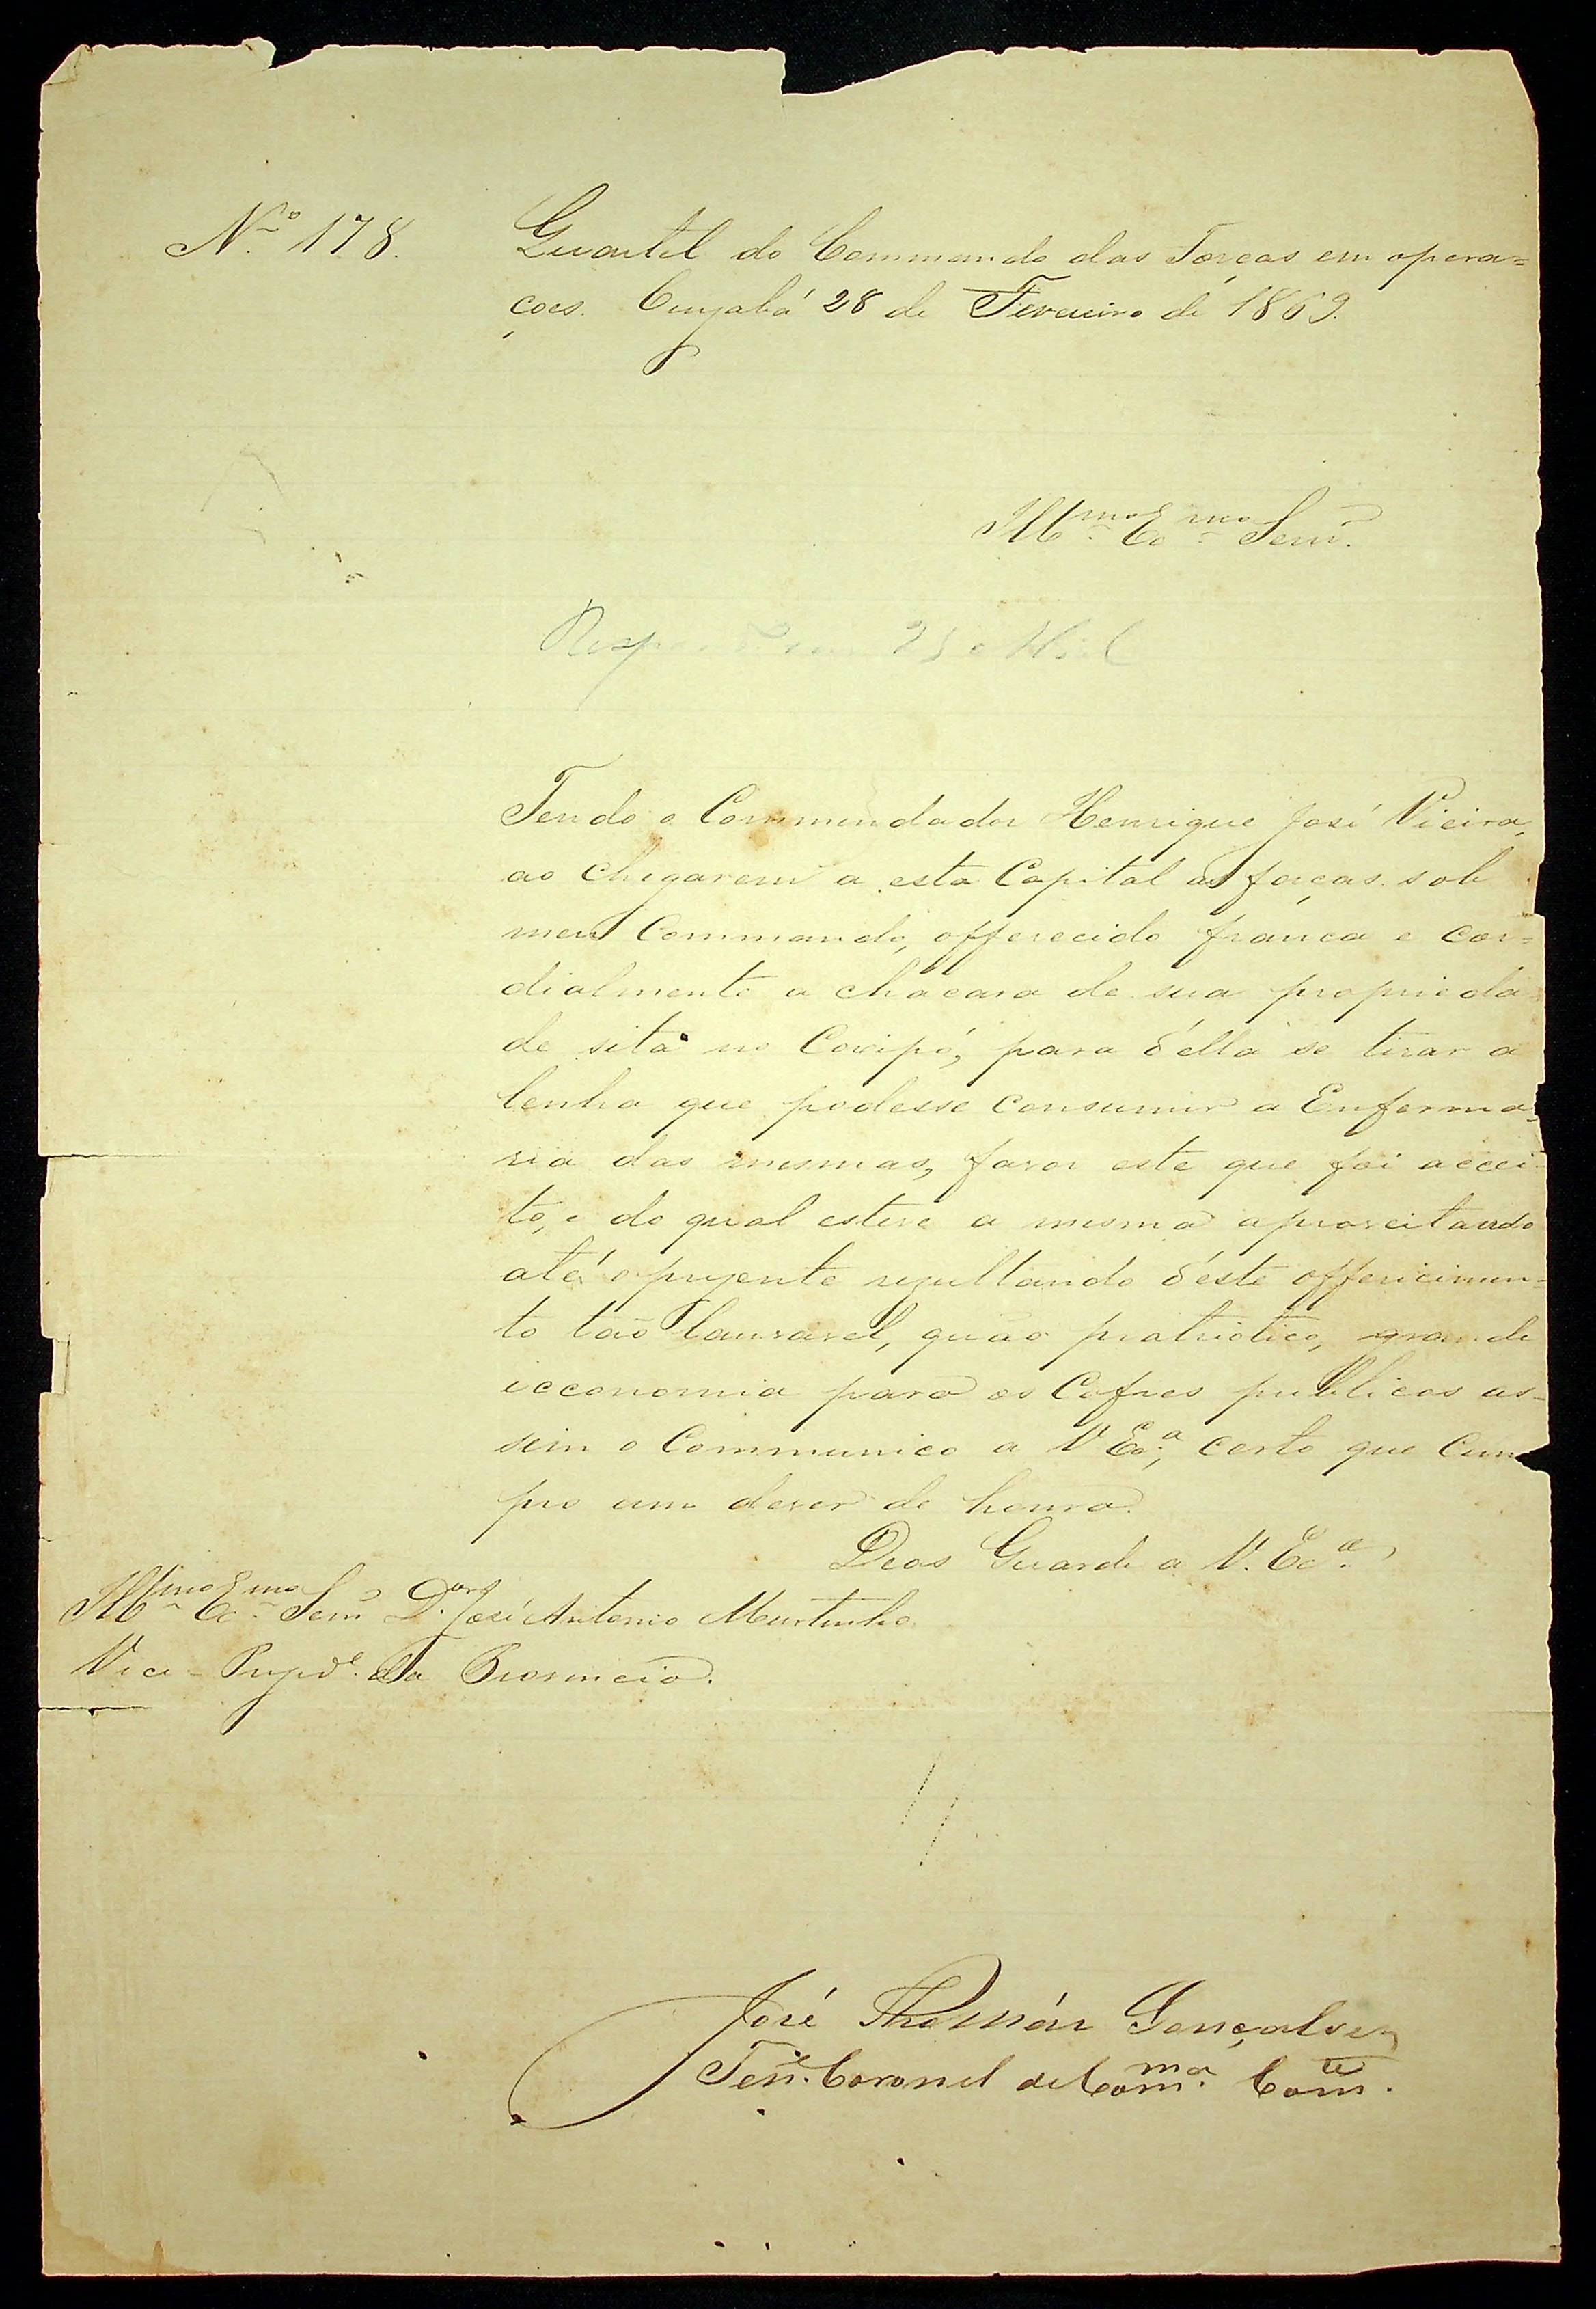 Nº 178.
Quartel do Commando das Forças em opera=
ções. Cuyabá 28 de Fevereiro de 1869.
Illmo. Exmo. Senr.
Tendo o Commendador Henrique José Vieira,
ao chegarem a esta Capital as forças sob
meu Commando, offerecido franca e cor=
dialmente a chacara de sua proprieda
de sita no Coxipó, para d'ella se tirar a
lenha que podesse consumir a Enferma=
ria das mesmas, favor este que foi accei
to, e do qual esteve a mesma aproveitando
até o prezente rezultando d'este offericimen=
to tão louvavel, quão patriotico, grande
icconomia para os Cofres publicos as-
sim o Communico a V Exa., certo que Cum
pro um dever de honra.
Deos Guarde a V. Exa.
Illmo. Exmo. Senr. Dor. José Antonio Murtinho
Vice-Prezde. da Provincia.
José Thomás Gonçalves
Tene. Coronel de Comma. Comte.